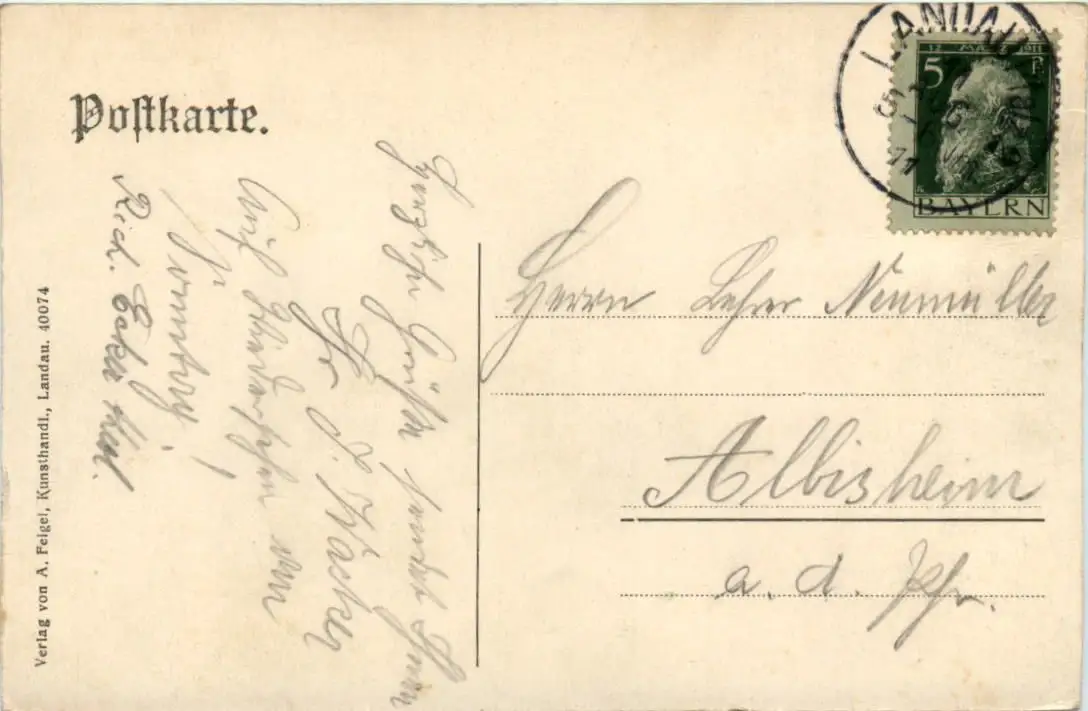 Postkarte.
LANDAU
12 MÄRZ 1911
5 Pf
BAYERN
Herzliche Grüße sendet Ihnen
Ihr J.
Auf Wiedersehen am
Sonntag!
Rich.
Herrn Lehrer Neumüller
Albisheim
a. d. Pfr.
Verlag von A. Feigel, Kunsthandl., Landau. 40074